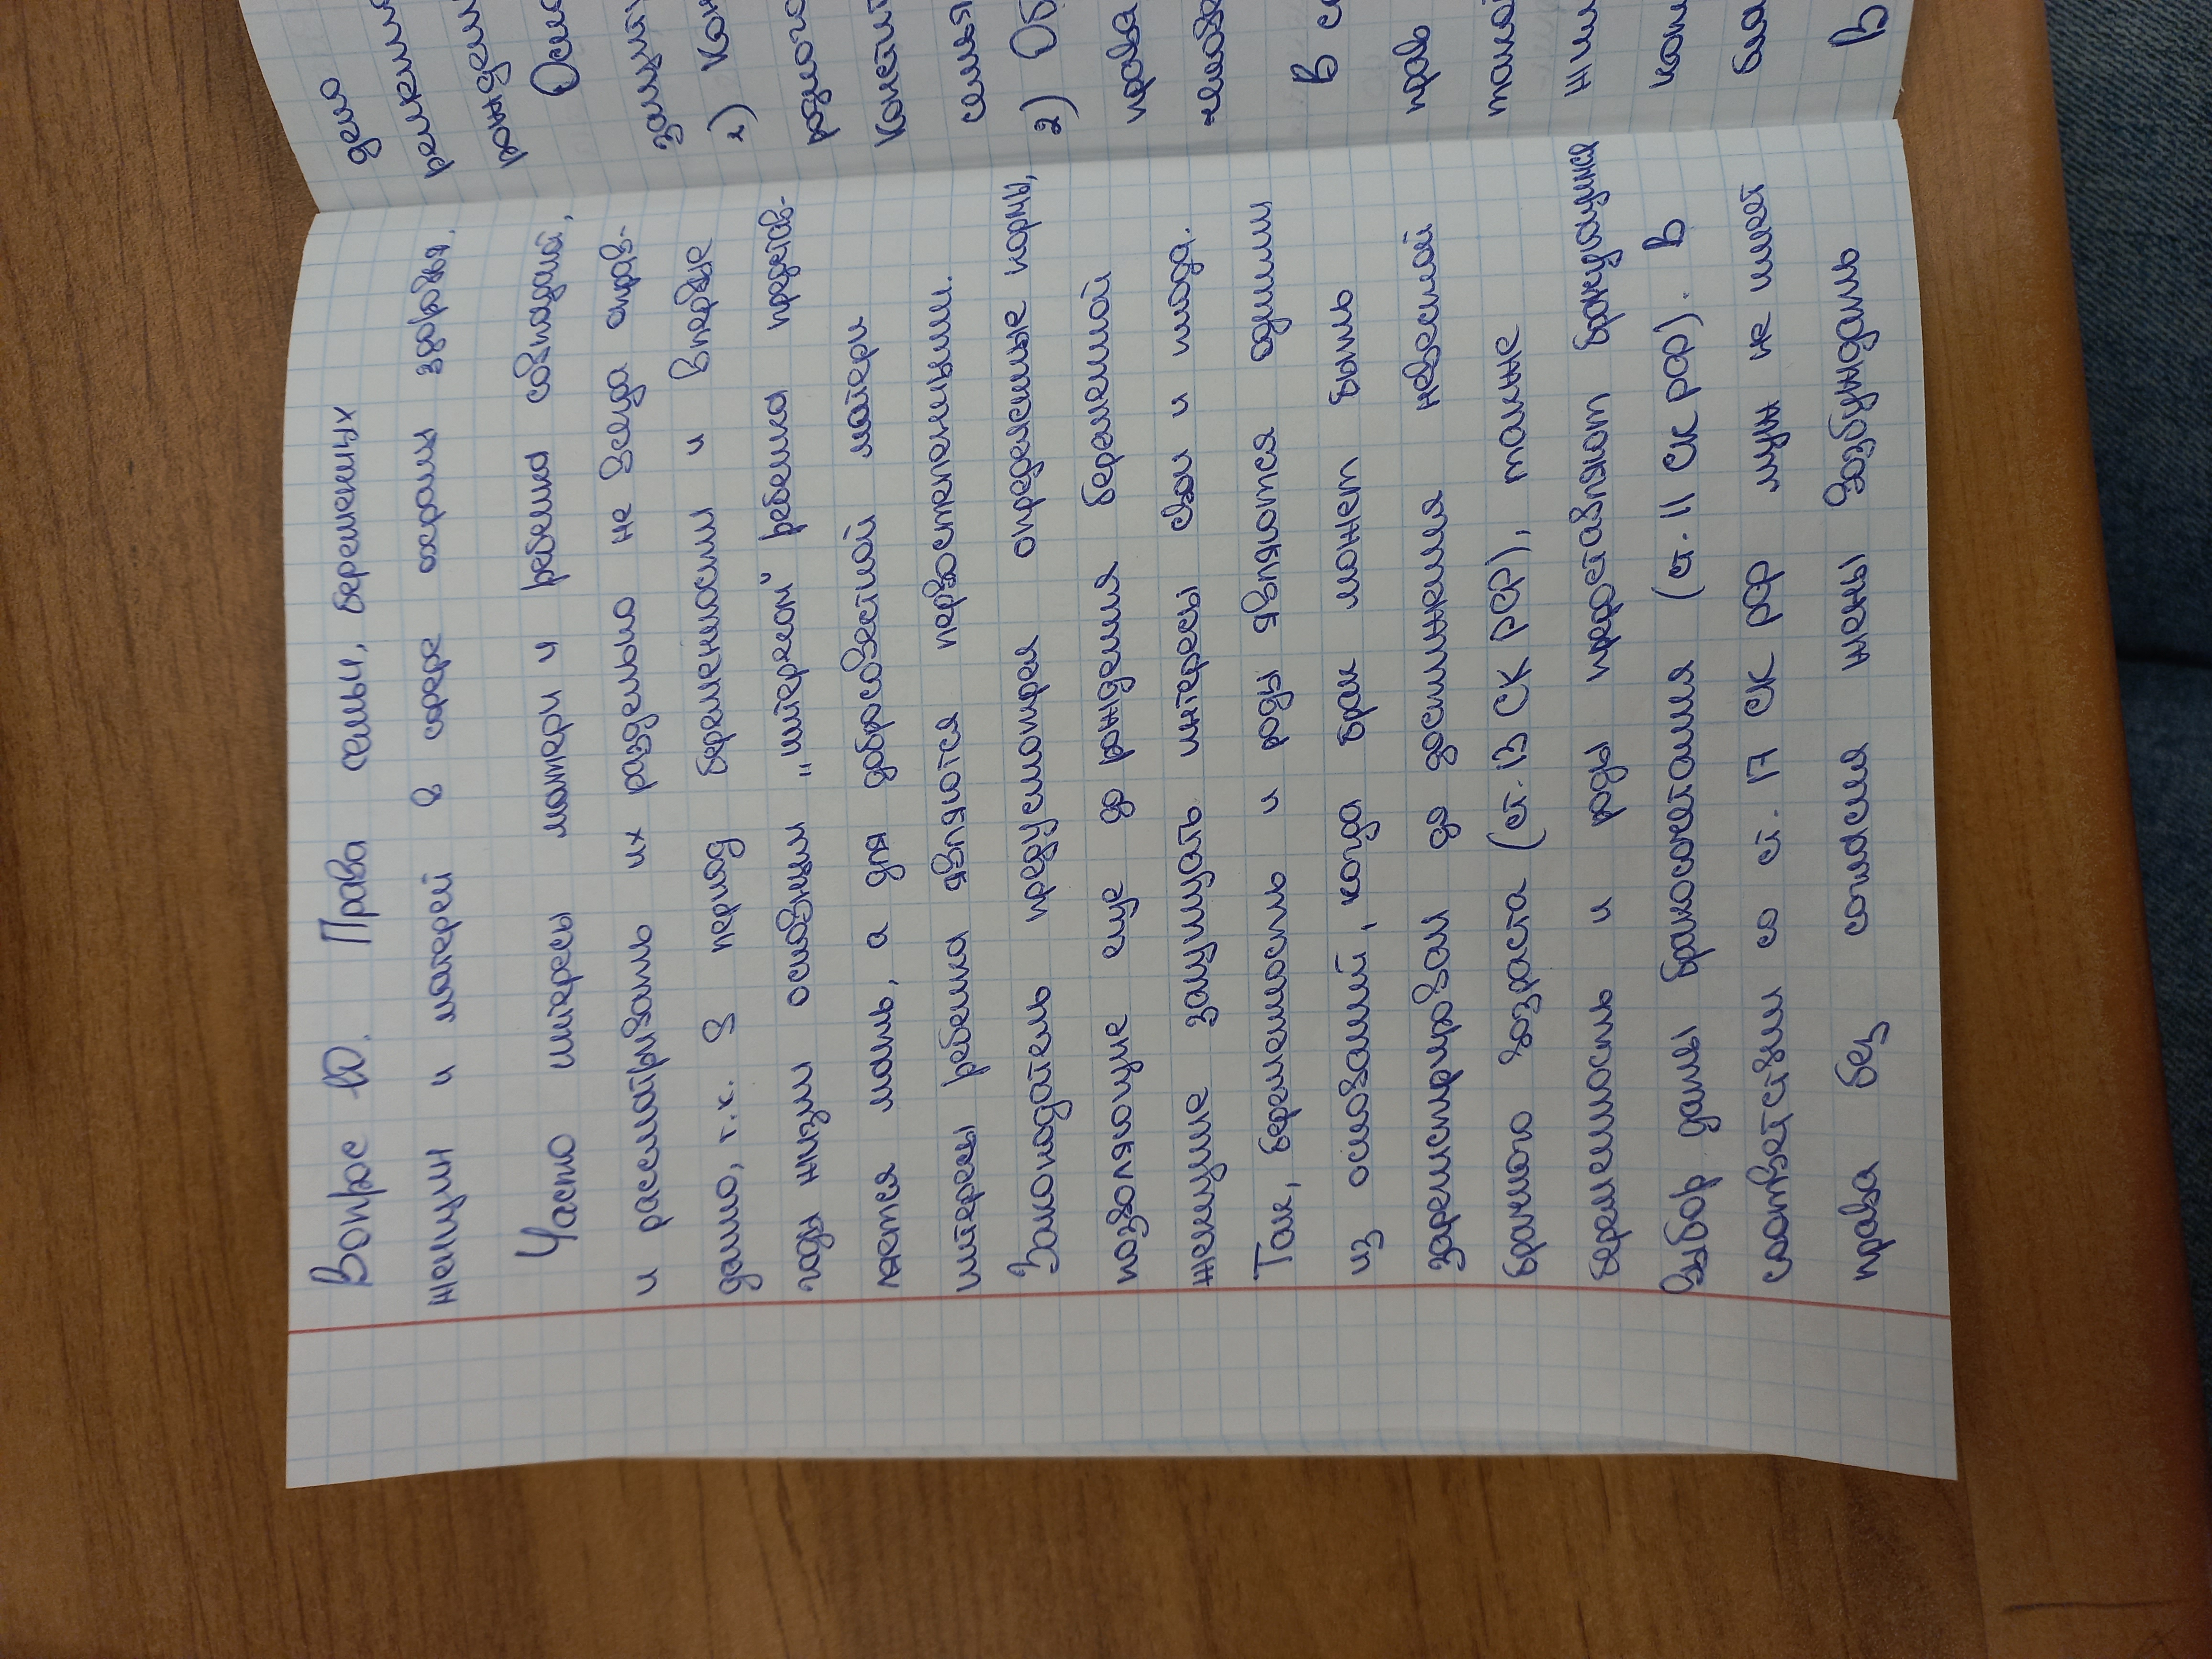 Вопрос 10. Права семьи, беременных
женщин и матерей в сфере охраны здоровья.
Часто интересы матери и ребенка совпадают,
и рассматривать их раздельно не всегда оправ-
дано, т.к. в период беременности и впервые
годы жизни основным „интересом" ребенка представ-
ляется мать, а для добросовестной матери
интересы ребенка являются первостепенными.
Законодатель предусмотрел определенные нормы,
позволяющие еще до рождения беременной
женщине защищать интересы свои и плода.
Так, беременность и роды являются одними
из оснований, когда брак может быть
зарегистрирован до достижения невестой
брачного возраста (ст. 13 СК РФ), также
беременность и роды предоставляют брачующимся
выбор даты бракосочетания (ст. 11 СК РФ). В
соответствии со ст. 17 СК РФ муж не имеет
права без согласия жены возбуждать
дело
рожден
Осно
защит
1) Кон
Конст
семья
2) Об
права
челове
В с
прав
такой
жи
В